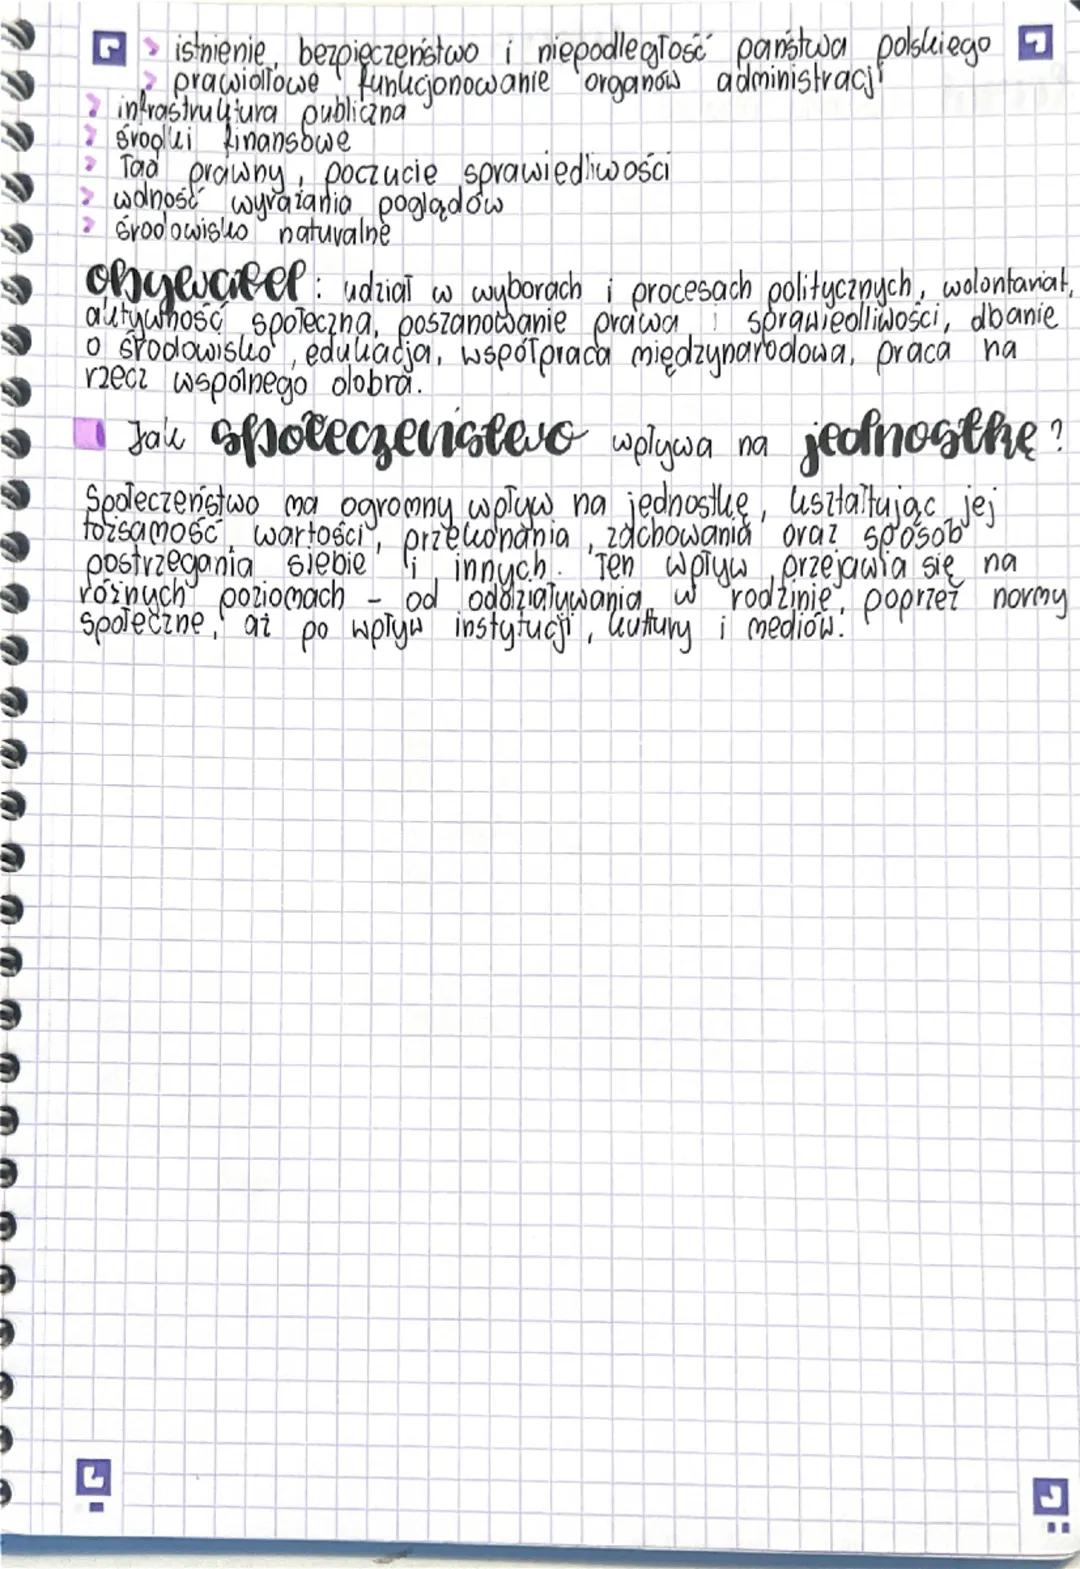 > istnienie, bezpieczeństwo i niepodległość państwa polskiego
> prawidłowe funkcjonowanie organów administracji
> infrastruktura publiczna
> środki finansowe
> ład prawny, poczucie sprawiedliwości
> wolność wyrażania poglądów
> środowisko naturalne
obywatel: udział w wyborach i procesach politycznych, wolontariat,
aktywność społeczna, poszanowanie prawa i sprawiedliwości, dbanie
o środowisko, edukacja, współpraca międzynarodowa, praca na
rzecz wspólnego dobra.
Jak społeczeństwo wpływa na jednostkę?
Społeczeństwo ma ogromny wpływ na jednostkę, kształtując jej
tożsamość, wartości, przekonania, zachowania oraz sposób
postrzegania siebie i innych. Ten wpływ przejawia się na
różnych poziomach - od oddziaływania w rodzinie, poprzez normy
społeczne, aż po wpływ instytucji, kultury i mediów.